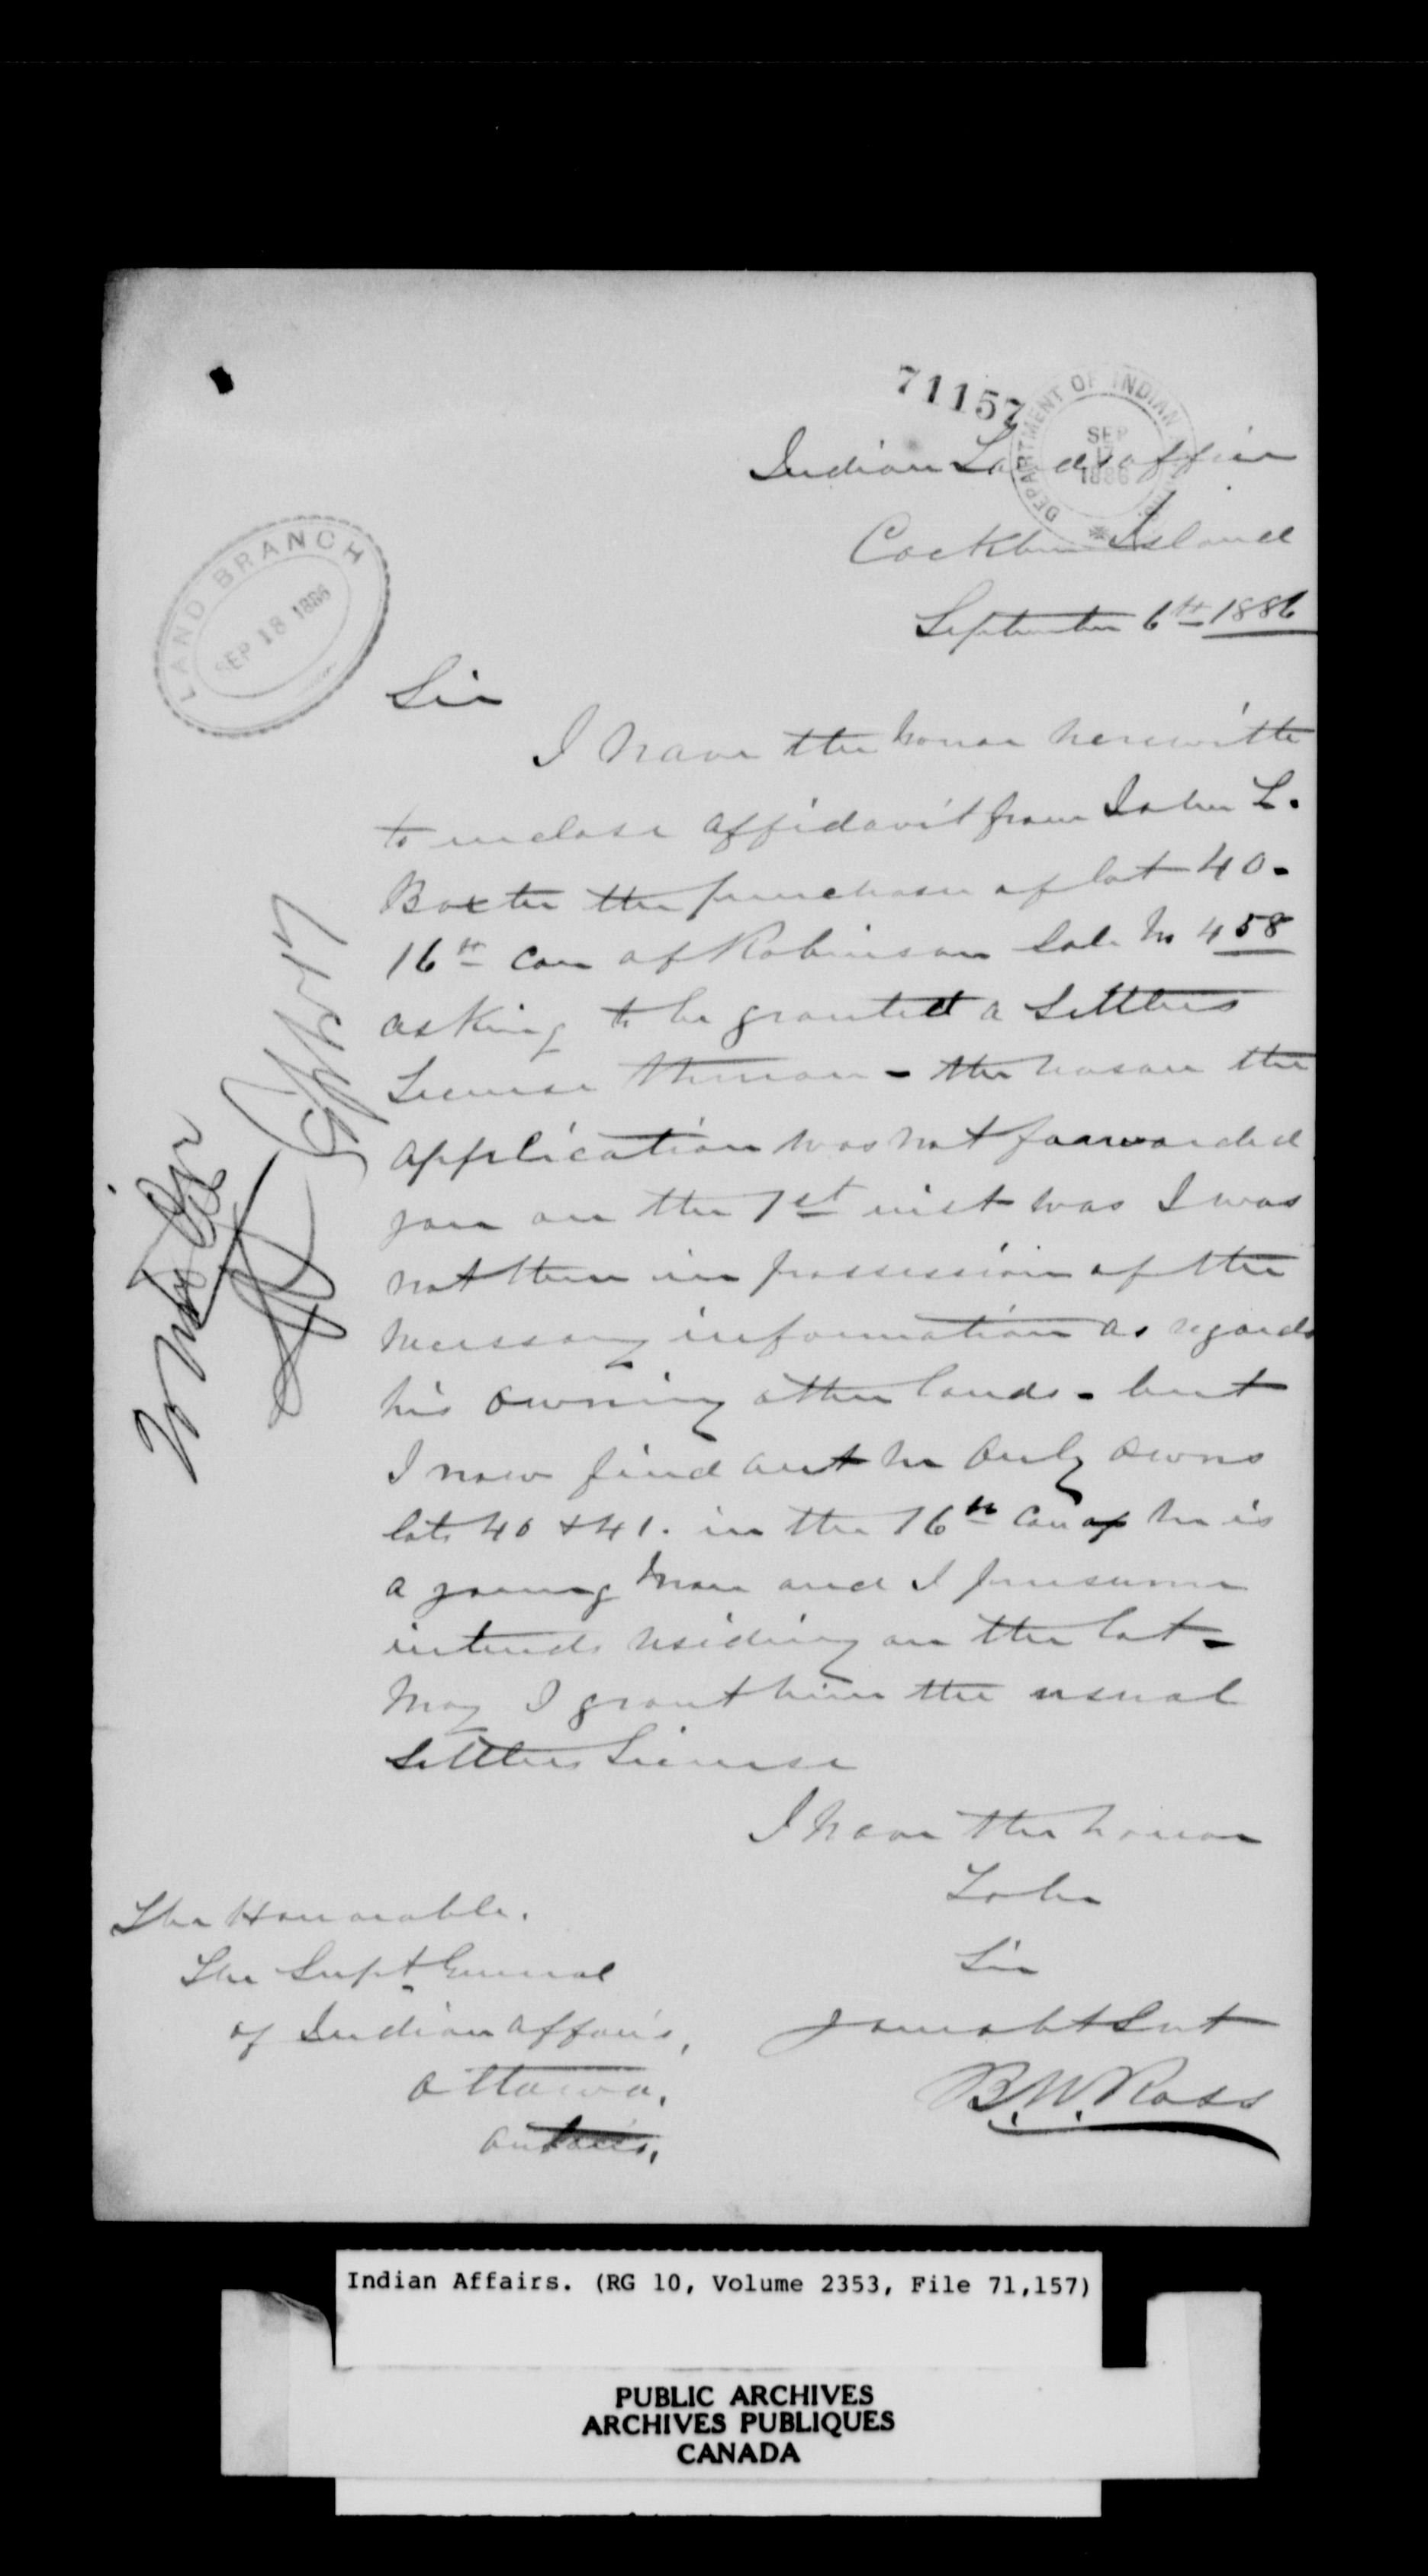 71157
DEPARTMENT OF INDIAN
SEP
17
1886
Indian Lands office
Cockburn Island
September 6th 1886
LAND BRANCH
SEP 18 1886
Sir
I have the honor herewith
to inclose affidavit from John L.
Baxter the purchaser of lot 40-
16th Con of Robinson Sale No 458
asking to be granted a Settlers
License thereon - the reason the
application was not forwarded
you on the 1st inst was I was
not then in possession of the
necessary information as regards
his owning other lands - but
I now find out he only owns
lots 40 & 41. in the 16th Con he is
a young man and I presume
intends residing on the lot -
May I grant him the usual
Settlers License
I have the honor
To be
Sir
your obt Svt
B.W. Ross
The Honorable.
The Supt General
of Indian Affairs,
Ottawa.
Ontario.
Indian Affairs. (RG 10, Volume 2353, File 71,157)
PUBLIC ARCHIVES
ARCHIVES PUBLIQUES
CANADA